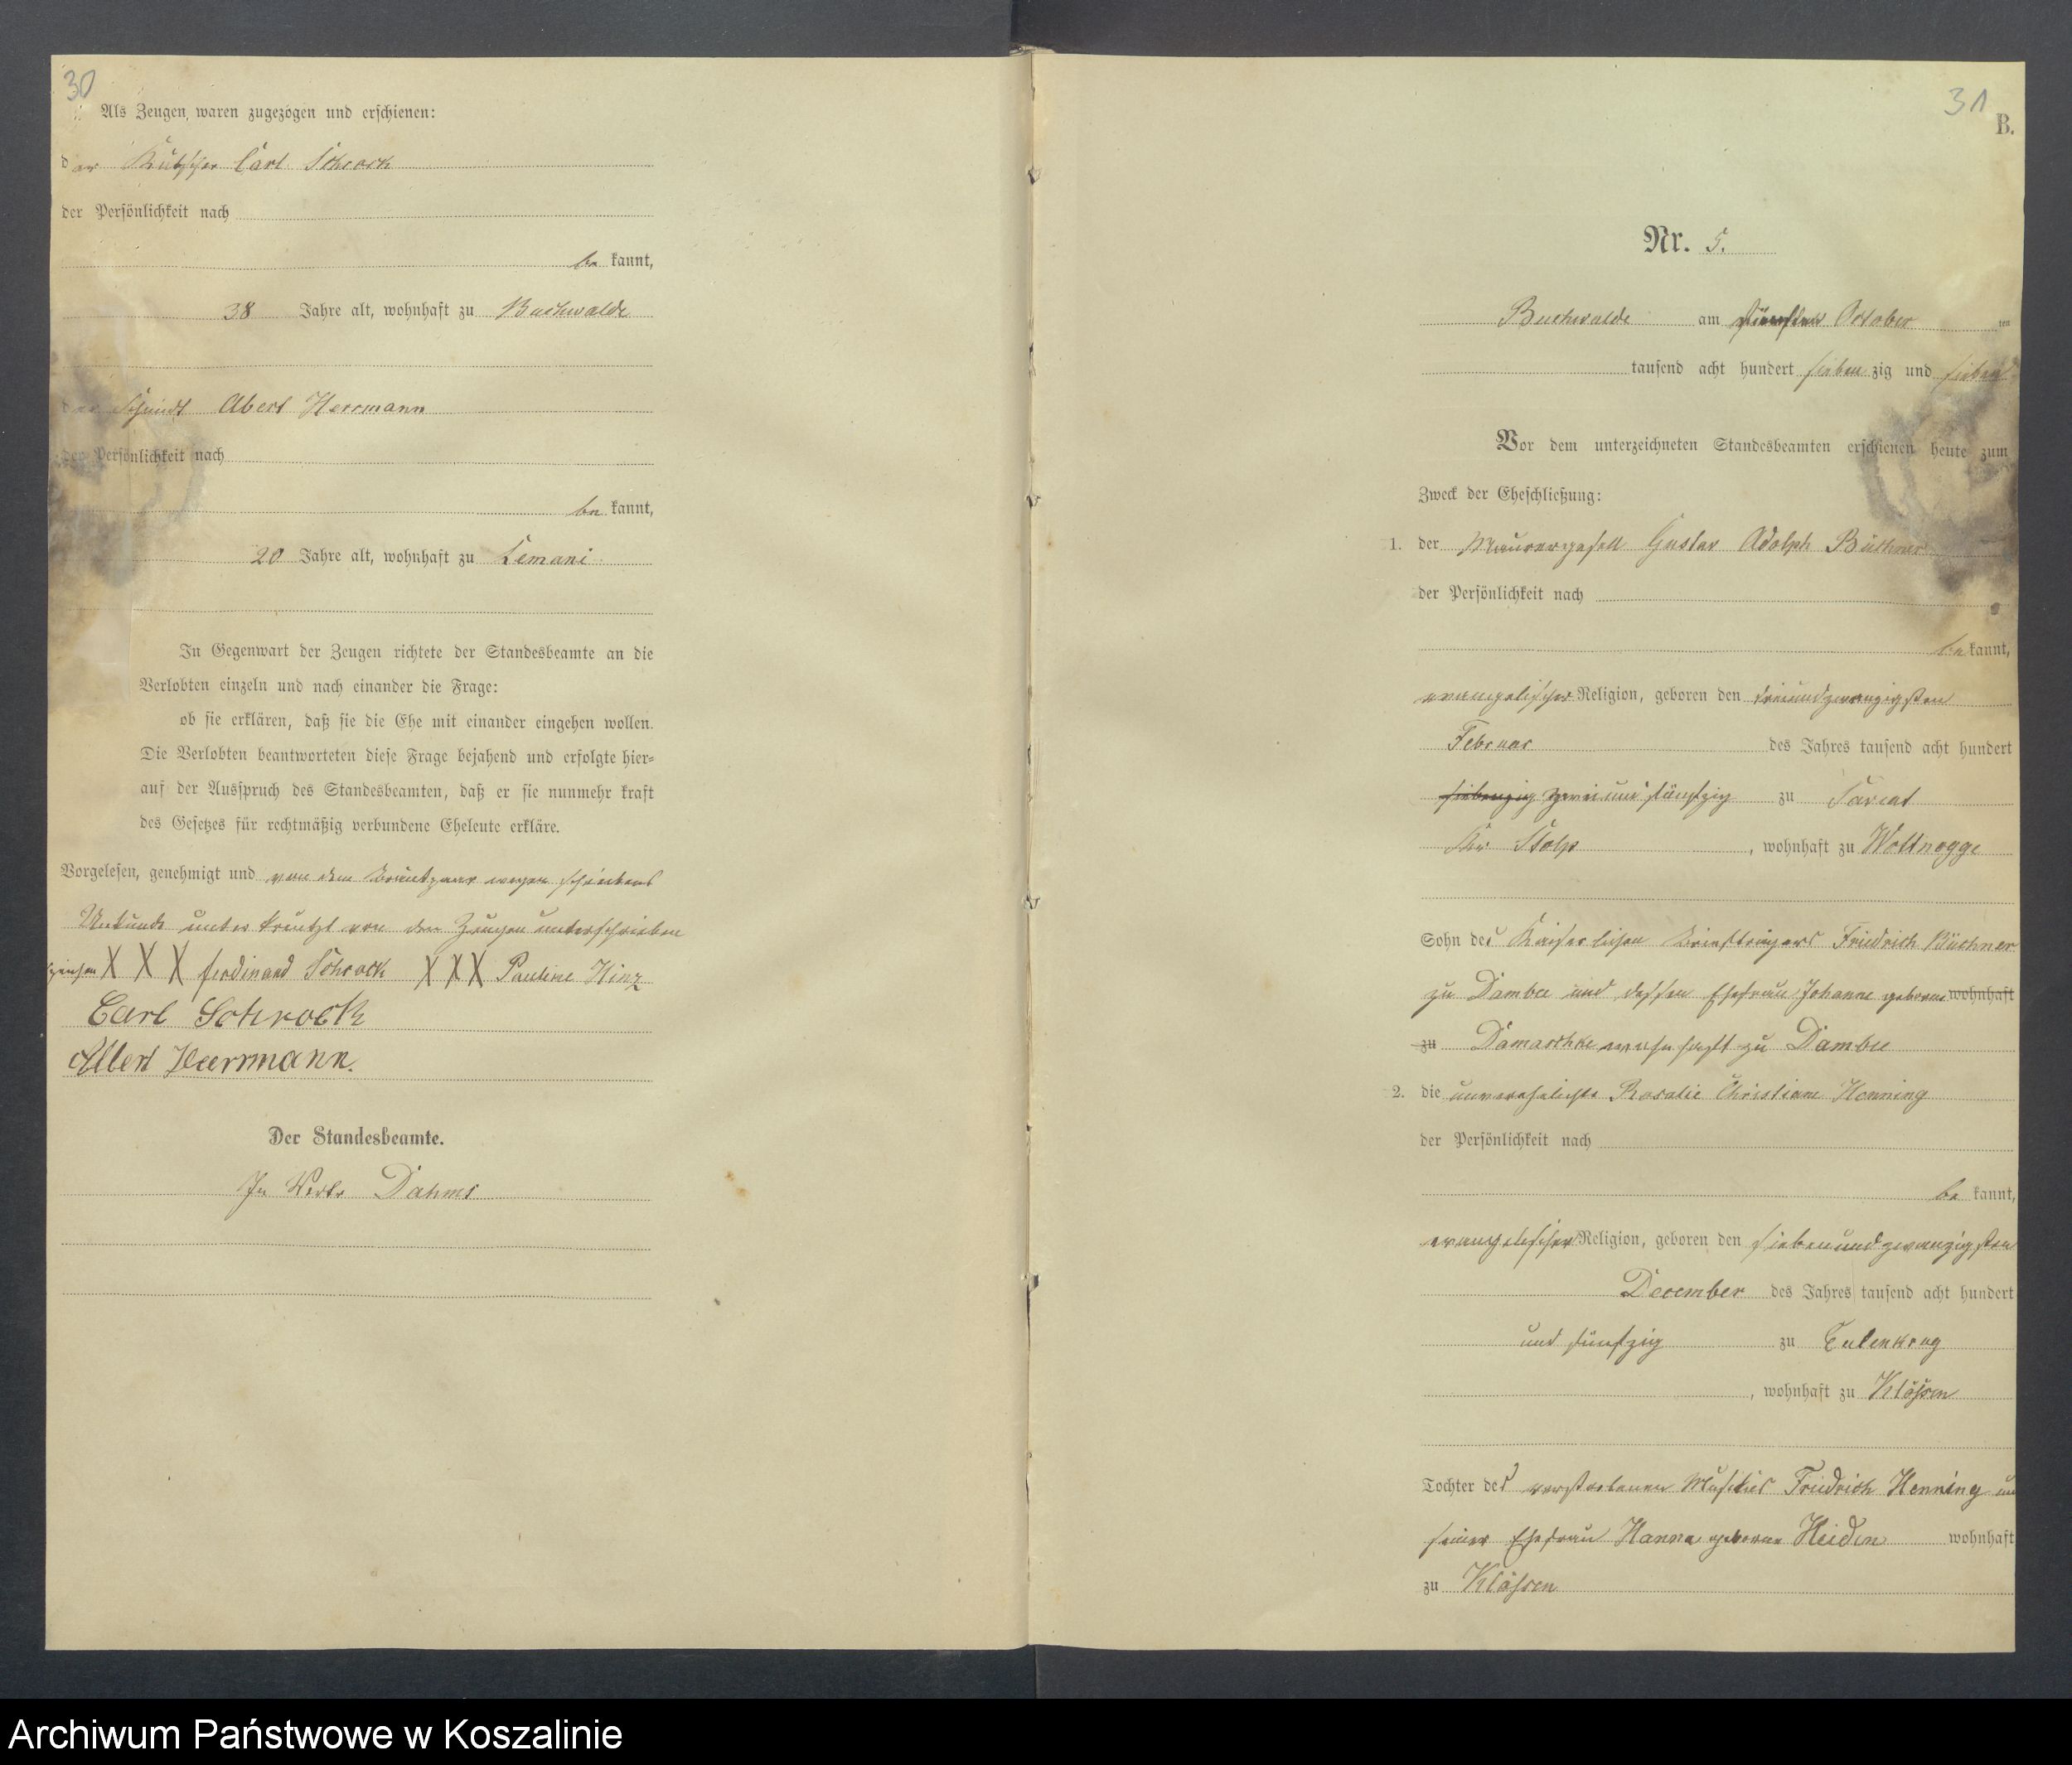 30
Als Zeugen waren zugezogen und erschienen:
der Kutscher Carl Schrock
der Persönlichkeit nach
be kannt,
38 Jahre alt, wohnhaft zu Buchwalde
der Abert Herrmann
der Persönlichkeit nach
be kannt,
20 Jahre alt, wohnhaft zu Zemani
In Gegenwart der Zeugen richtete der Standesbeamte an die
Verlobten einzeln und nach einander die Frage:
ob sie erklären, daß sie die Ehe mit einander eingehen wollen.
Die Verlobten beantworteten diese Frage bejahend und erfolgte hier-
auf der Ausspruch des Standesbeamten, daß er sie nunmehr kraft
des Gesetzes für rechtmäßig verbundene Eheleute erkläre.
Vorgelesen, genehmigt und von dem Brautpaar wegen Schreibens
Unkunde unter kreutzt von den Zeugen unterschrieben
X X X ferdinand Schrock X X X Pauline Hinz
Carl Schrock
Albert Heerrmann.
Der Standesbeamte.
In Vertr Dahms
31
B.
Nr. 5.
Buchwalde am fünften October ten
tausend acht hundert sieben zig und sieben
Vor dem unterzeichneten Standesbeamten erschienen heute zum
Zweck der Eheschließung:
1. der Maurergesell Gustav Adolph Büchner
der Persönlichkeit nach
be kannt,
evangelischer Religion, geboren den dreiundzwanzigsten
Februar des Jahres tausend acht hundert
siebenzig zwei und fünfzig zu Saviat
Kr Stolp, wohnhaft zu Wottnogge
Sohn des Kaiserlichen Briefträgers Friedrich Büchner
zu Dambee und dessen Ehefrau Johanne geborene wohnhaft
zu Damaschke wohnhaft zu Dambee
2. die unverehelichte Rosalie Christiane Henning
der Persönlichkeit nach
be kannt,
evangelischer Religion, geboren den siebenundzwanzigsten
December des Jahres tausend acht hundert
und fünfzig zu Eulenkrug
, wohnhaft zu Klössen
Tochter des verstorbenen Musikus Friedrich Henning und
seiner Ehefrau Hanna geborne Heiden wohnhaft
zu Klössen
Archiwum Państwowe w Koszalinie